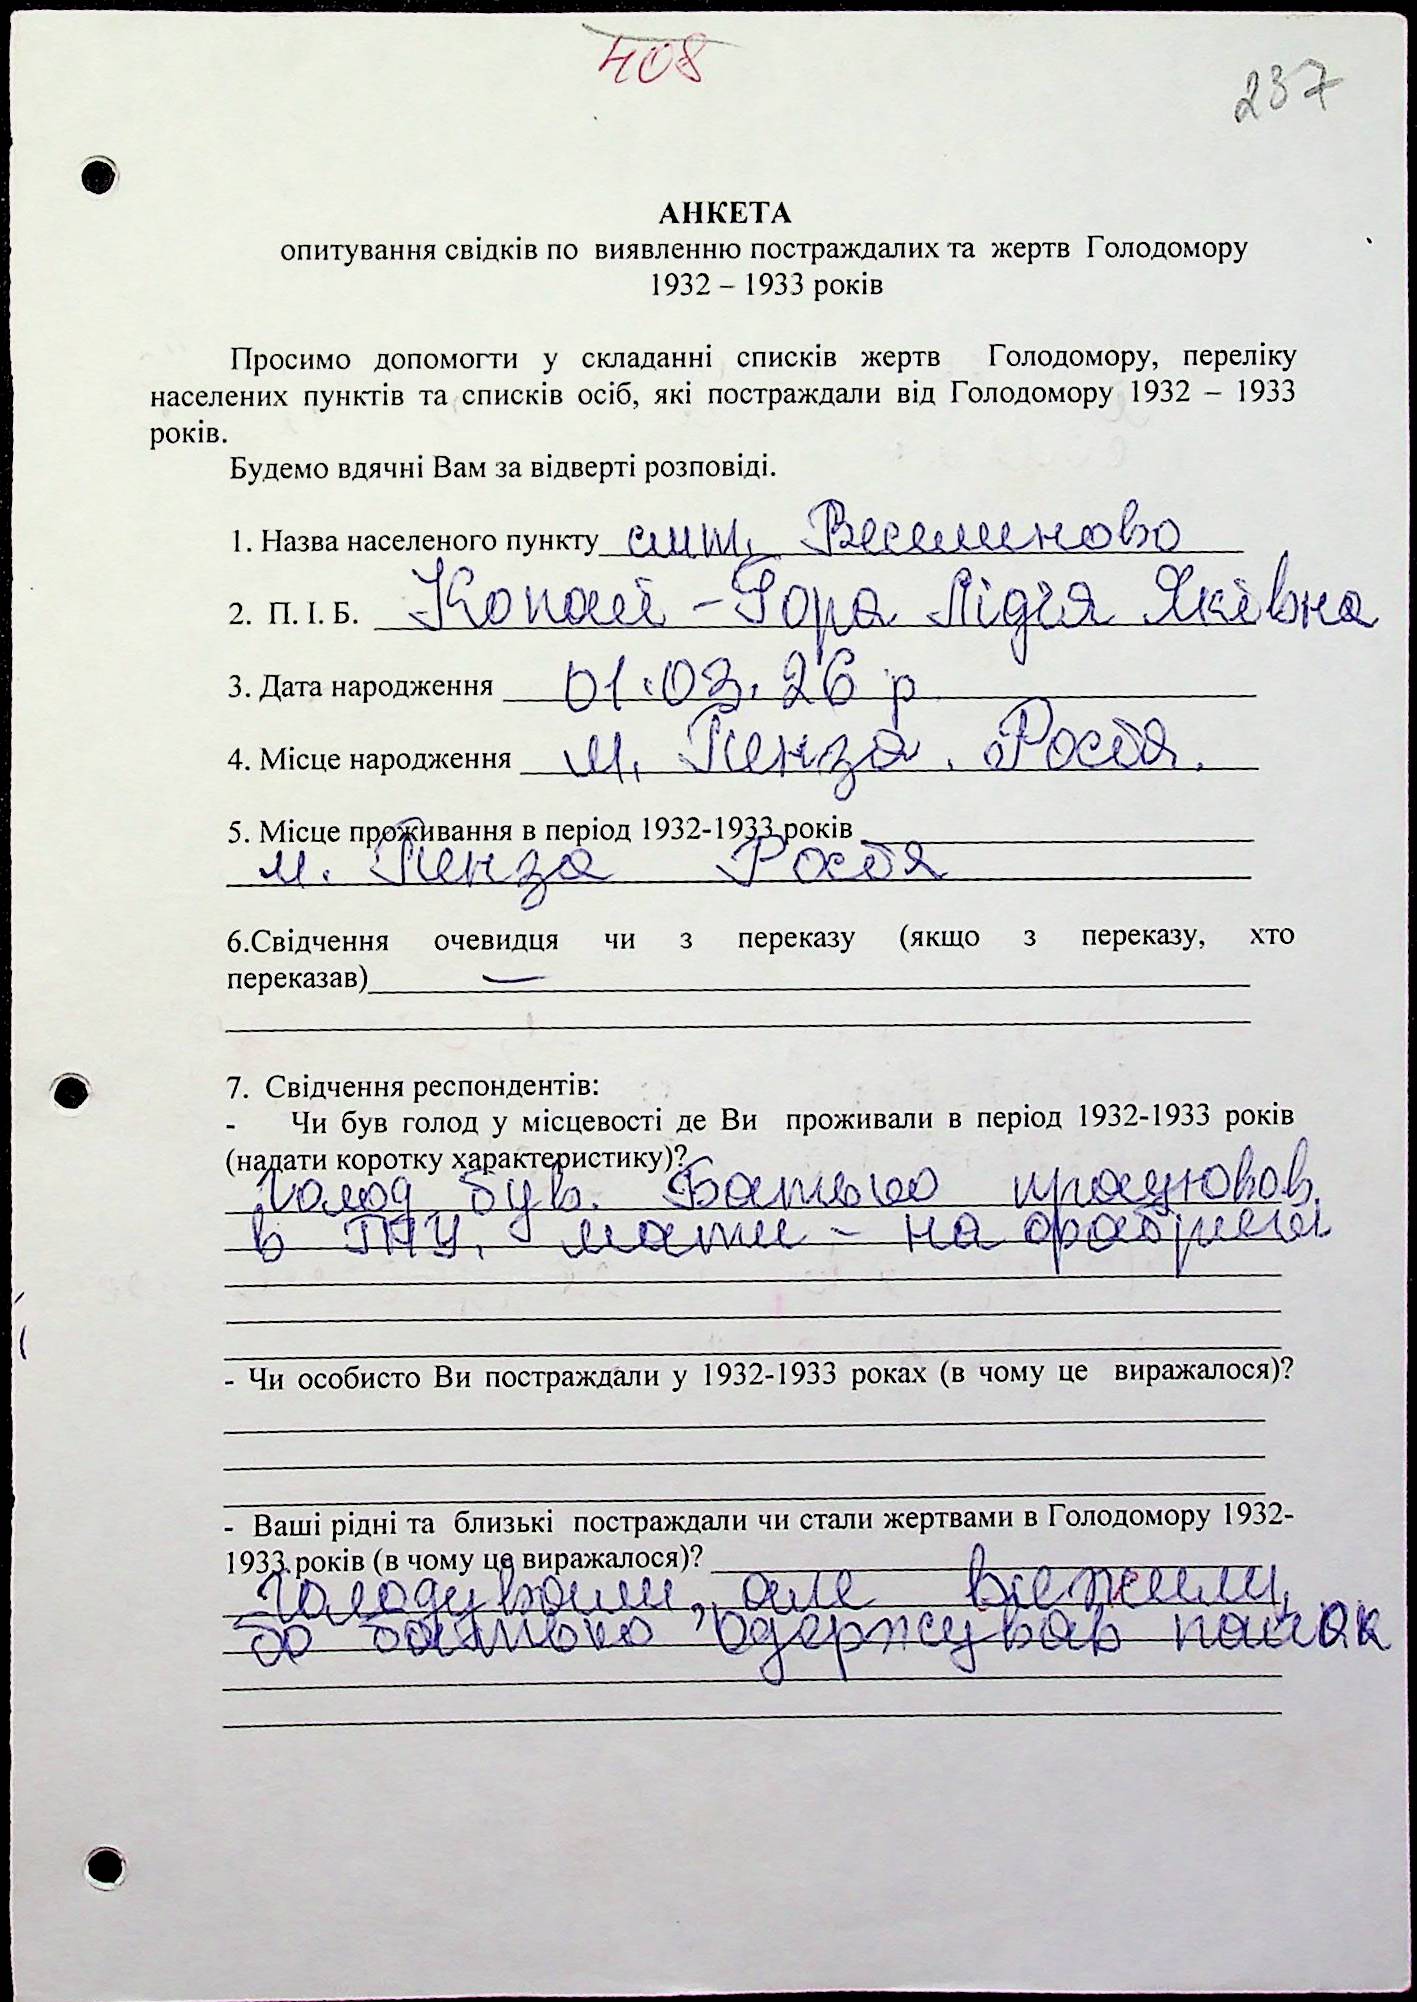 408
237
АНКЕТА
опитування свідків по виявленню постраждалих та жертв Голодомору
1932 – 1933 років
Просимо допомогти у складанні списків жертв Голодомору, переліку
населених пунктів та списків осіб, які постраждали від Голодомору 1932 – 1933
років.
Будемо вдячні Вам за відверті розповіді.
1. Назва населеного пункту смт. Веселиново
2. П. І. Б. Копай-Гора Лідія Яківна
3. Дата народження 01.03.26 р
4. Місце народження м. Пенза. Росія.
5. Місце проживання в період 1932-1933 років
м. Пенза Росія
6.Свідчення очевидця чи з переказу (якщо з переказу, хто
переказав) —
7. Свідчення респондентів:
- Чи був голод у місцевості де Ви проживали в період 1932-1933 років
(надати коротку характеристику)?
Голод був. Батько працював
в ГПУ, мати - на фабриці
- Чи особисто Ви постраждали у 1932-1933 роках (в чому це виражалося)?
- Ваші рідні та близькі постраждали чи стали жертвами в Голодомору 1932-
1933 років (в чому це виражалося)?
Голодували, але вижили,
бо батько одержував пайок